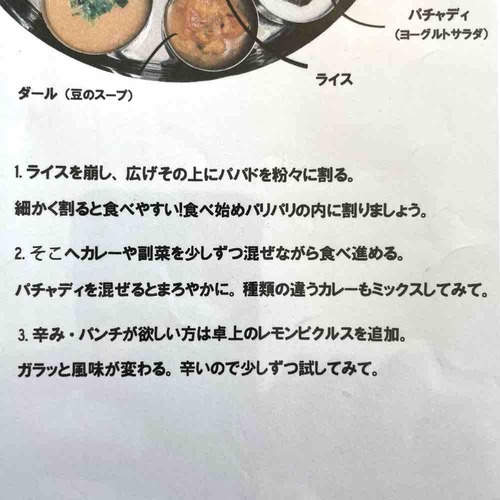 パチャディ
(ヨーグルトサラダ)
ライス
ダール(豆のスープ)
1. ライスを崩し、広げその上にパパドを粉々に割る。
細かく割ると食べやすい!食べ始めパリパリの内に割りましょう。
2. そこへカレーや副菜を少しずつ混ぜながら食べ進める。
パチャディを混ぜるとまろやかに。種類の違うカレーもミックスしてみて。
3. 辛み・パンチが欲しい方は卓上のレモンピクルスを追加。
ガラッと風味が変わる。辛いので少しずつ試してみて。